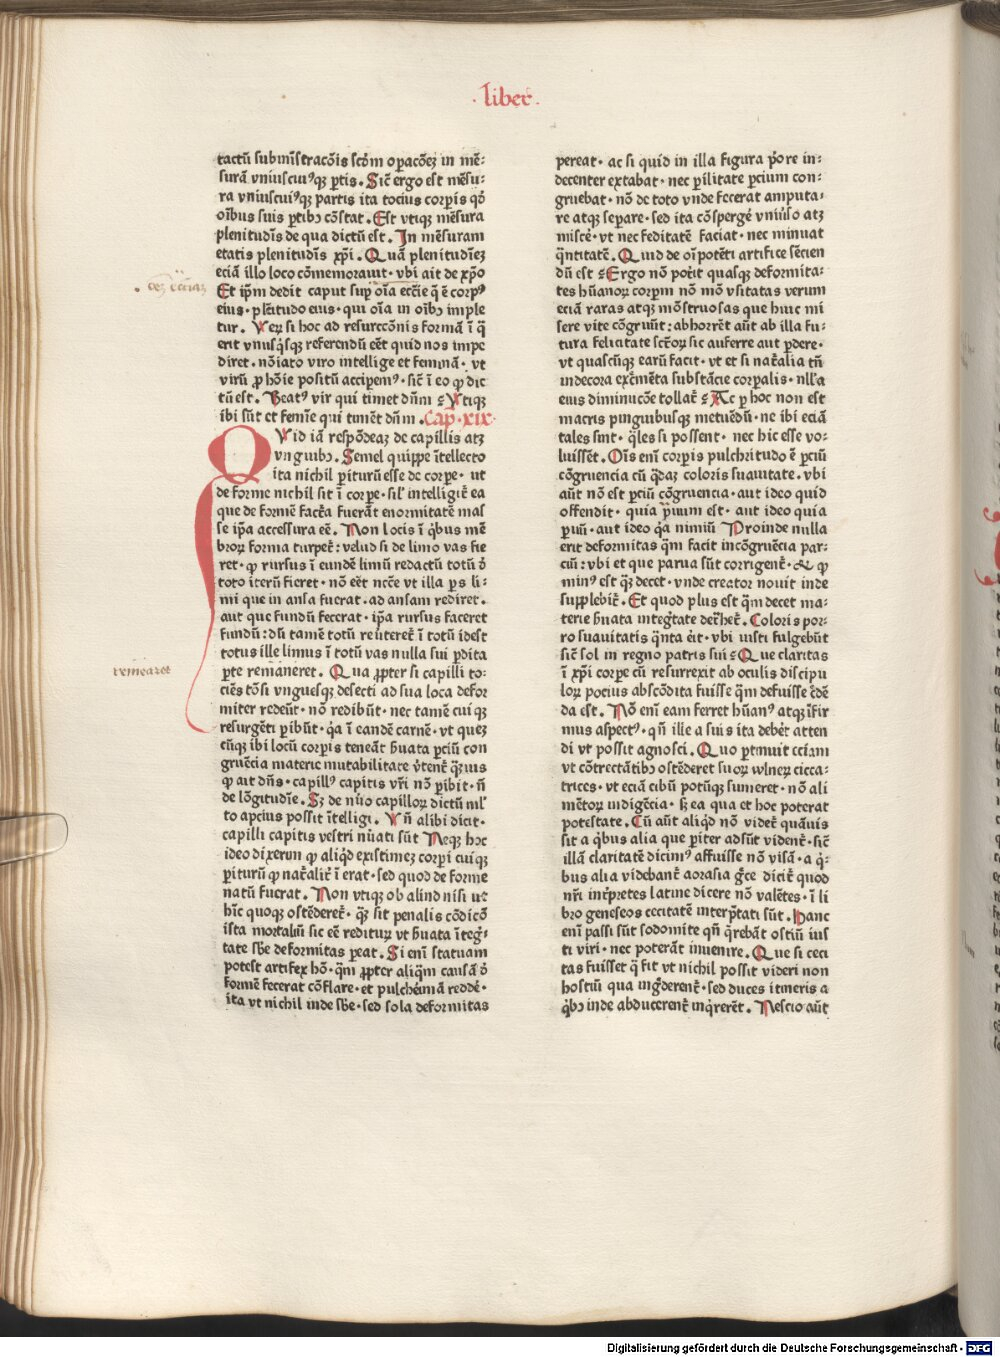 ·liber·
tactū submīstracōis scōm oꝑacōeꝫ in mē⸗
surā vniuscuiꝰqꝫ ꝑtis. Sic̄ ergo est mēsu⸗
ra vniuscuiꝰqꝫ partis ita tocius corꝑis qd̄
oībus suis ꝑtibꝫ cōstat. Est vtiqꝫ mēsura
plenitudīs de qua dictū est. In mēsuram
etatis plenitudīs xp̄i. Quā plenitudīeꝫ
eciā illo loco cōmemorauit · vbi ait de xp̄o
Et ip̄m dedit caput suꝑ oīa ecc̄ie q̄ ē corpꝰ
eius · plētudo eius · qui oīa in oībꝫ imple
tur. Veꝝ si hoc ad resurccōnis formā ī q̄
erit vnusq̄sqꝫ referendū eēt quid nos impe
diret · nōiato viro intellige et feminā · vt
virū ꝓ hōie positū accipemꝰ · sic̄ ī eo ꝙ dic
tū est. Beatꝰ vir qui timet dn̄m · Vtiqꝫ
ibi sūt et femīe qui timēt dn̄m. Cap · xix·
QVid iā respōdeaꝫ de capillis atꝫ
vnguibꝫ. Semel quippe ītellecto
ita nichil ꝑiturū esse de corꝑe · ut
de forme nichil sit ī corꝑe · sil' intelligit̄ ea
que de formē factā fuerāt enormitatē mas
se ip̄a accessura eē. Non locis ī q̄bus mē
broꝝ forma turpet̄: velud si de limo vas fie
ret · ꝙ rursus ī eundē limū redactū totū d̄
toto iterū fieret · nō eēt ncc̄e vt illa ꝑs li⸗
mi que in ansa fuerat · ad ansam rediret.
aut que fundū fecerat · ip̄a rursus faceret
fundū: dū tamē totū reuteret̄ ī totū idest
totus ille limus ī totū vas nulla sui ꝑdita
ꝑte remāneret. Qua ꝓpter si capilli to⸗
ciēs tōsi vnguesqꝫ desecti ad sua loca defor
miter redeūt · nō redibūt · nec tamē cuiqꝫ
resurgēti ꝑibūt · q̄a ī eandē carnē · vt queꝫ
cūqꝫ ibi locū corꝑis teneāt ẖuata ꝑciū con
gruēcia materie mutabilitate v̄tent̄ q̄ꝫuis
ꝙ ait dn̄s · capillꝰ capitis vr̄i nō ꝑibit · n̄
de lōgitudīe. Sꝫ de nūo capilloꝝ dictū ml̄
to apcius possit ītelligi. Vn̄ alibi dicit ·
capilli capitis vestri nūati sūt Neqꝫ hoc
ideo dixerun ꝙ aliq̄d existimeꝫ corꝑi cuiqꝫ
ꝑiturū ꝙ nat̄alit̄ ī erat · sed quod de forme
natū fuerat. Non vtiqꝫ ob aliud nisi ut
hīc quoqꝫ ostēderet̄ · q̄ꝫ sit penalis cōdicō
ista mortaliū sic eē redituꝝ vt ẖuata īteg̾⸗
tate sb̄e deformitas ꝑeat. Si enī statuam
potest artifex hō · q̄m ꝓpter aliq̄m causā d̄
formē fecerat cōflare · et pulcheīmā redde·
ita vt nichil inde sb̄e · sed sola deformitas
pereat · ac si quid in illa figura p̄ore in⸗
decenter extabat · nec ꝑilitate ꝑcium con⸗
gruebat · nō de toto vnde fecerat amputa⸗
re atqꝫ seꝑare · sed ita cōspergē vniūso atꝫ
miscē · vt nec feditatē faciat · nec minuat
q̄ntitatē. Quid de oīpotēti artifice sēcien
dū est · Ergo nō potīt quasqꝫ deformita⸗
tes hūanoꝝ corꝑm nō mō vsitatas verum
eciā raras atqꝫ mōstruosas que huic mi
sere vite cōgruūt: abhorrēt aūt ab illa fu⸗
tura felicitate scr̄oꝝ sic auferre aut ꝑdere ·
vt quascūqꝫ earū facit · vt et si nat̄alia tn̄
indecora exc̄mēta substācie corꝑalis · nll'a
eius diminucōe tollat̄ · Ac ꝑ hoc non est
macris pinguibusqꝫ metuēdū · ne ibi eciā
tales sint · q̄les si possent · nec hic esse vo⸗
luissēt. Oīs enī corꝑis pulchritudo ē ꝑciū
cōgruencia cū q̄daꝫ coloris suauitate. vbi
aūt nō est ꝑciū cōgruencia · aut ideo quid
offendit · quia prauum est · aut ideo quia
ꝑuū · aut ideo q̄a nimiū Proinde nulla
erit deformitas q̄m facit incōgruēcia par⸗
ciū: vbi et que parua sūt corrigent̄ · & ꝙ
minꝰ est q̄ꝫ decet · vnde creator nouit inde
supplebit̄. Et quod plus est q̄m decet ma⸗
terie ẖuata integ̾tate det̄het̄. Coloris por⸗
ro suauitatis q̄nta ēit · vbi iusti fulgebūt
sic̄ sol in regno patris sui · Que claritas
ī xp̄i corꝑe cū resurrexit ab oculis discipu
loꝝ pocius abscōdita fuisse q̄m defuisse c̄dē
da est. Nō enī eam ferret hūanꝰ atqꝫ īfir
mus aspectꝰ · qn̄ ille a suis ita debēt atten
di vt possit agnosci. Quo ꝑtinuit eciam
vt cōtrectātibꝫ ostēderet suoꝝ wlneꝝ cicca⸗
trices · vt eciā cibū potūqꝫ sumeret · nō ali
mētoꝝ indigēcia · sꝫ ea qua et hoc poterat
potestate. Cū aūt aliq̄d nō videt̄ quāuis
sit a q̄bus alia que ꝑiter adsūt vident̄ · sic̄
illā claritatē dicimꝰ affuisse nō visā · a q̄⸗
bus alia videbant̄ aorasia gr̄ce dicit̄ quod
nr̄i int̄p̄tes latine dicere nō valētes · ī li
bro geneseos cecitatē interp̄tati sūt. Hanc
enī passi sūt sodomite qn̄ q̄rebāt ostiū ius
ti viri · nec poterāt inuenire. Que si ceci
tas fuisset q̄ fit vt nichil possit videri non
hostiū qua ing̾derent̄ · sed duces itineris a
q̄bꝫ inde abducerent̄ inq̄rerēt. Nescio aūt
remēaret